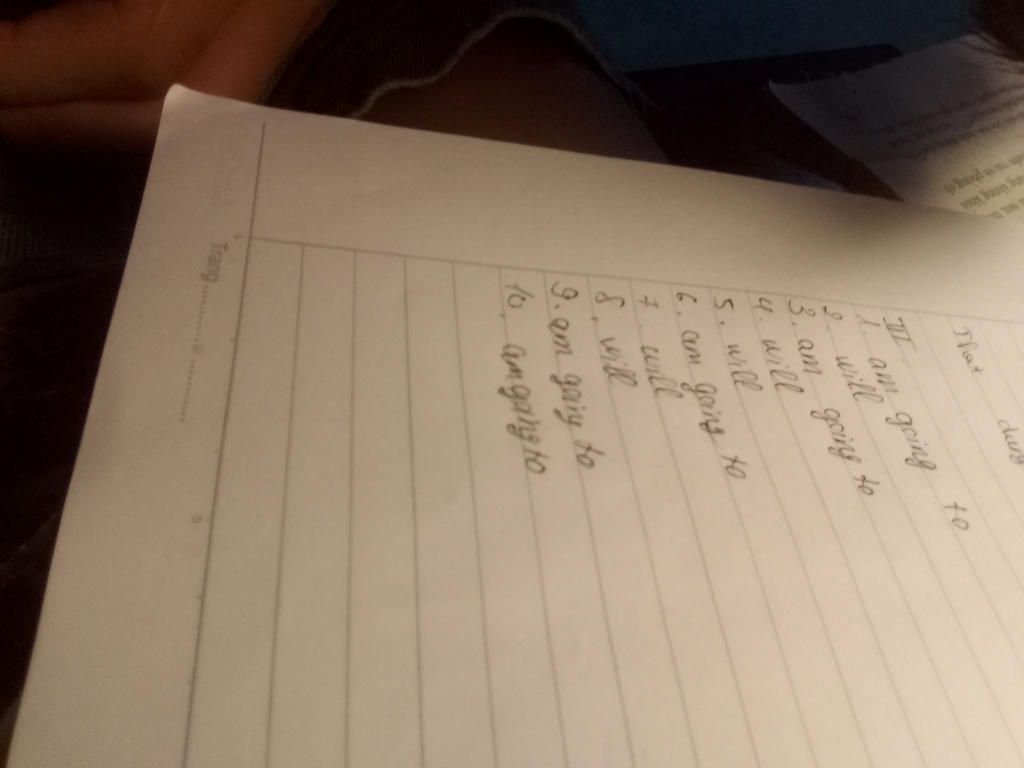 dung
That
II
1. am going to
2. will
3. am going to
4. will
5. will
6. am going to
7. will
8. will
9. am goiy to
10. am going to
Trang